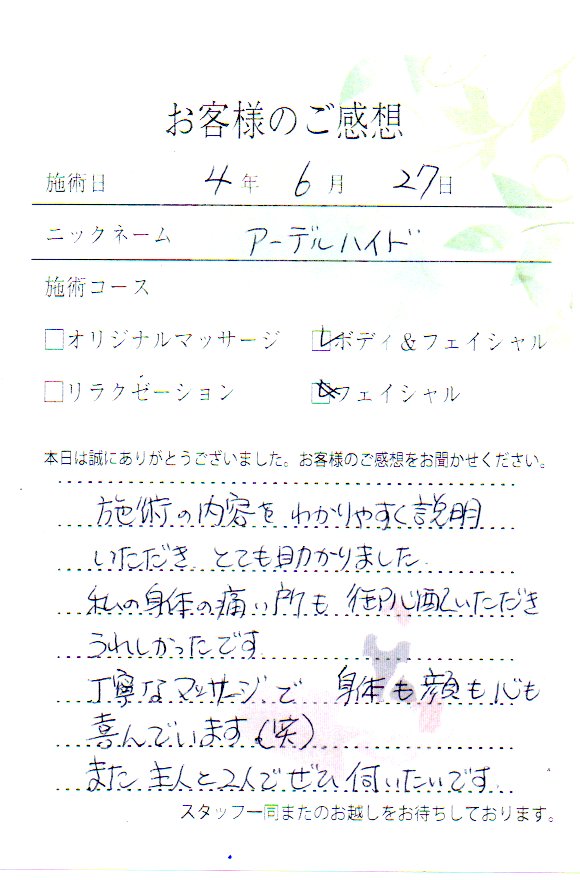 お客様のご感想
施術日 4年 6月 27日
ニックネーム アーデルハイド
施術コース
□オリジナルマッサージ ☑ボディ&フェイシャル
□リラクゼーション □フェイシャル
本日は誠にありがとうございました。お客様のご感想をお聞かせください。
施術の内容を わかりやすく説明
いただき とても助かりました
私の身体の痛い所も 御心配いただき
うれしかったです
丁寧なマッサージで 身体も顔も心も
喜んでいます(笑)
また 主人と2人でぜひ 伺いたいです
スタッフ一同またのお越しをお待ちしております。